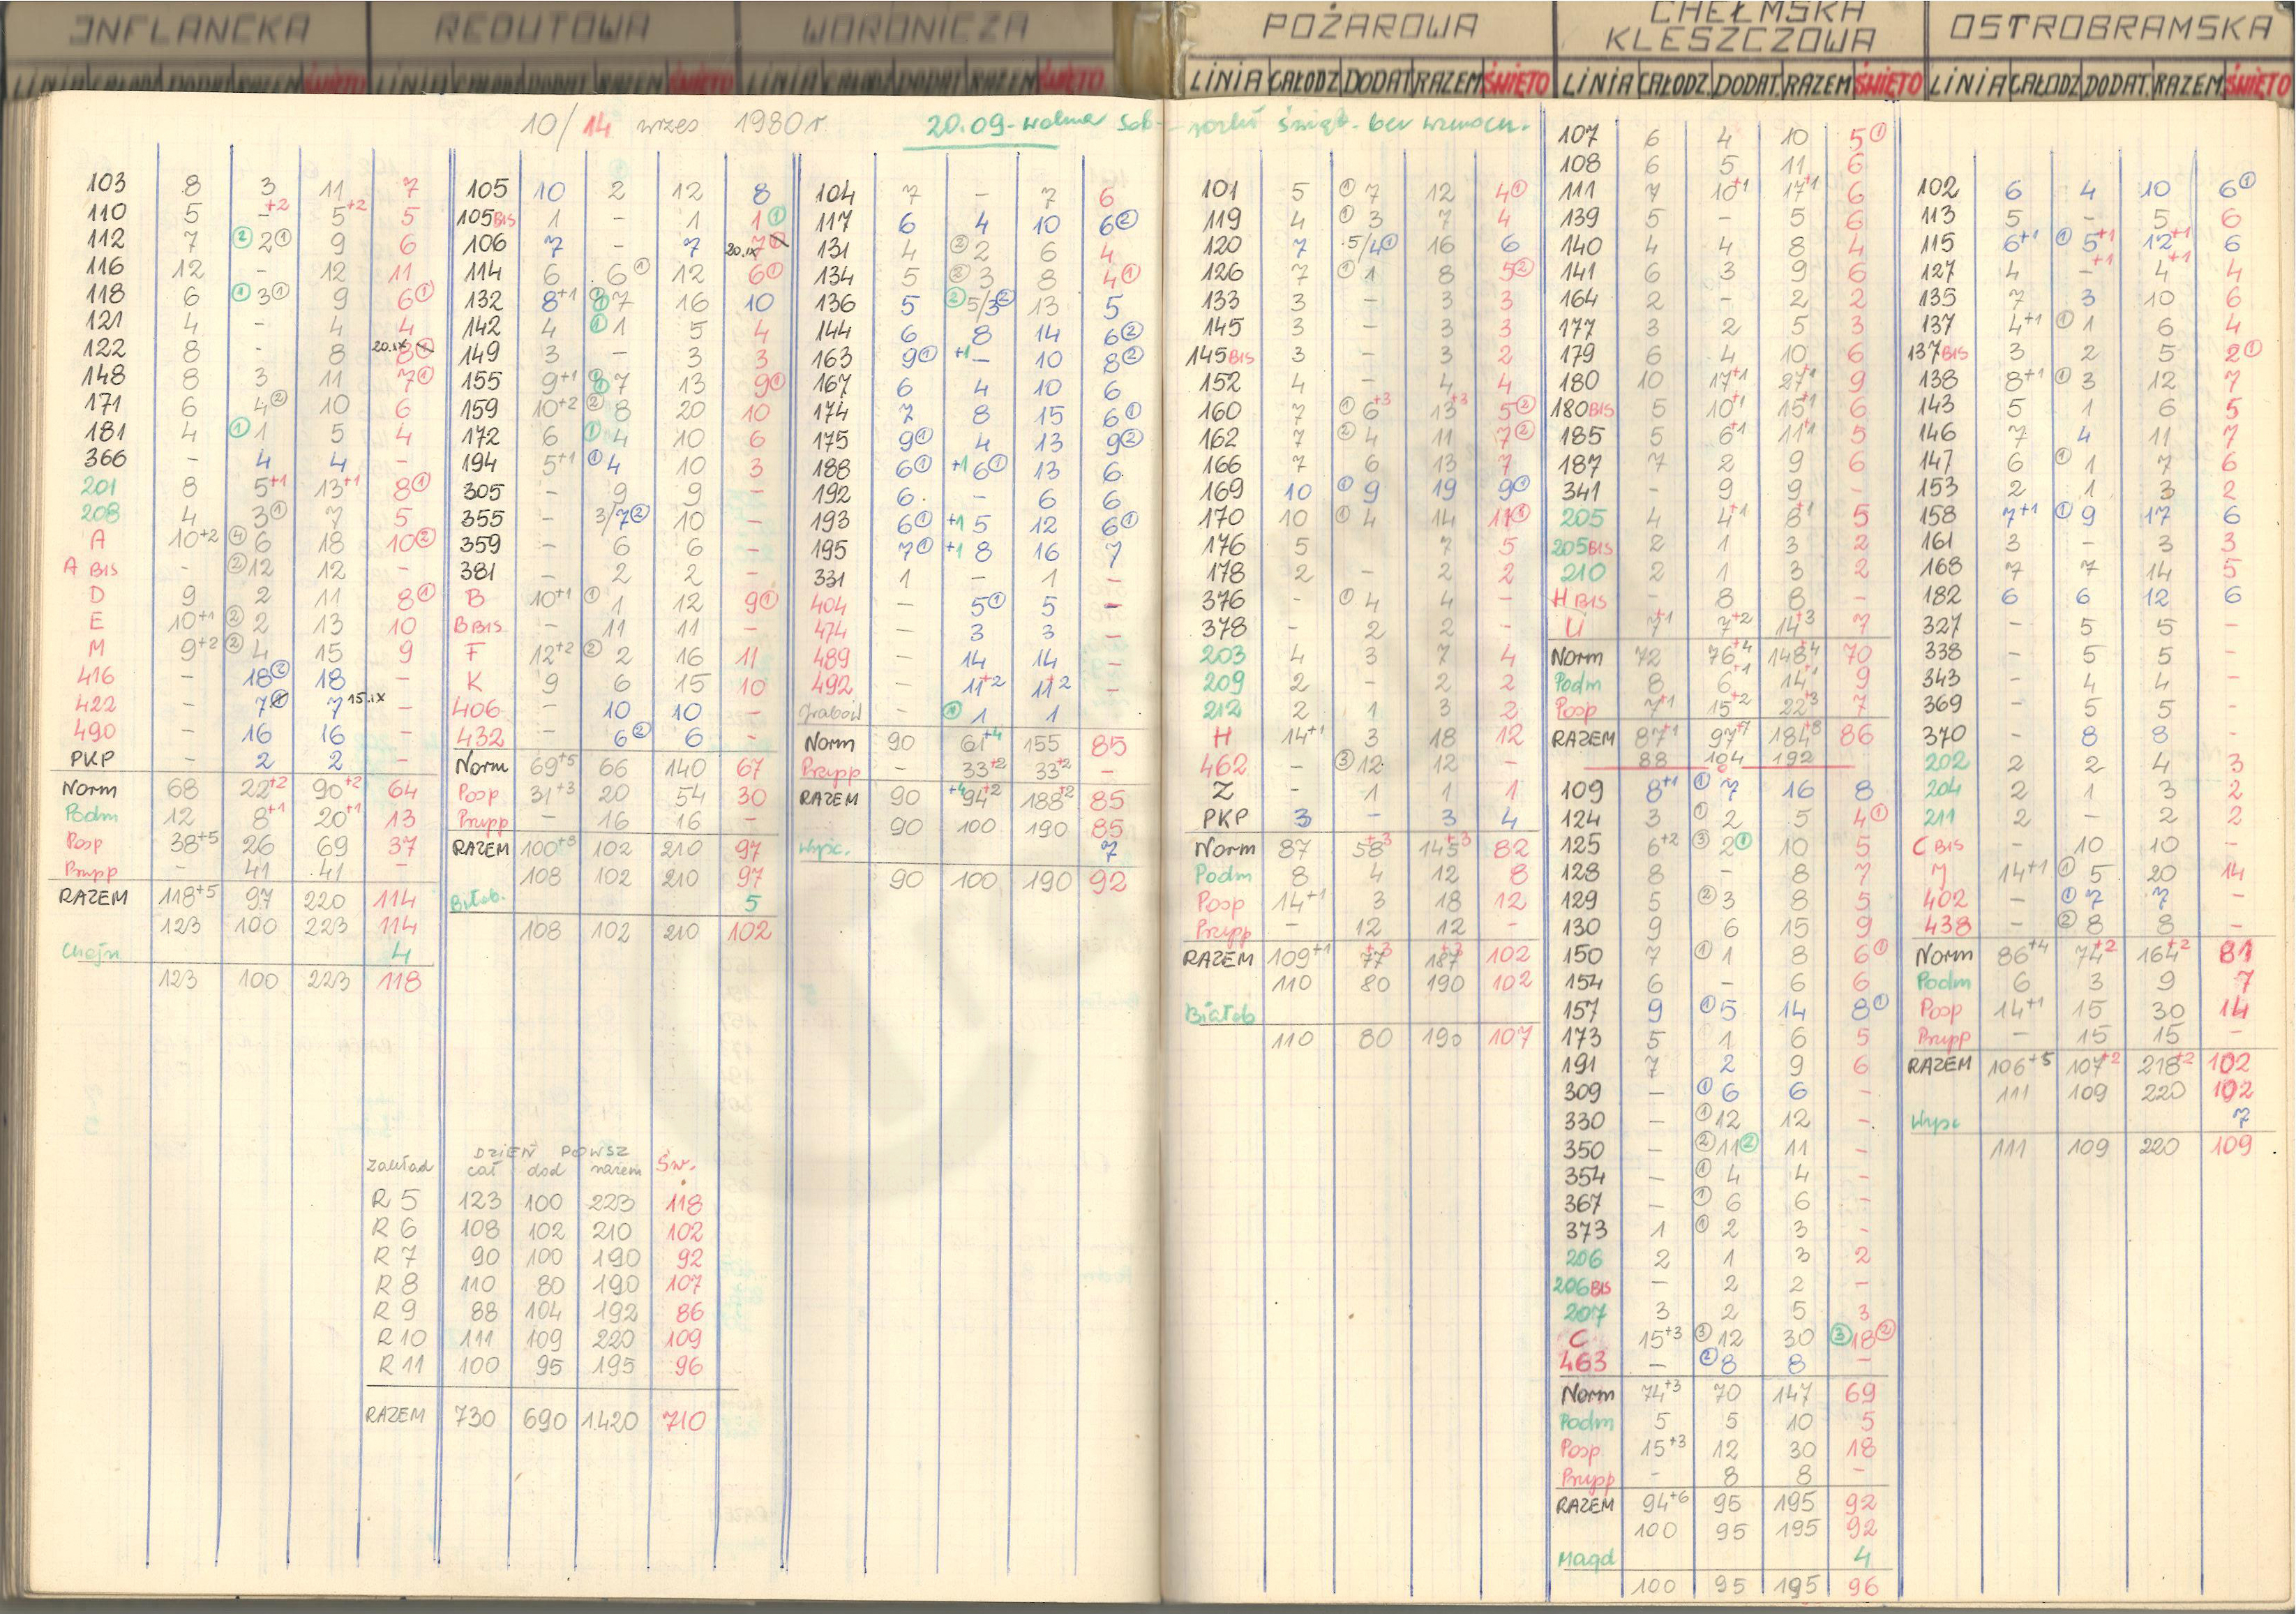 INFLANCKA
LINIA CAŁODZ DODAT RAZEM ŚWIĘTO
REDUTOWA
LINIA CAŁODZ DODAT RAZEM ŚWIĘTO
WORONICZA
LINIA CAŁODZ DODAT RAZEM ŚWIĘTO
POŻAROWA
LINIA CAŁODZ DODAT RAZEM ŚWIĘTO
CHEŁMSKA
KLESZCZOWA
LINIA CAŁODZ. DODAT. RAZEM ŚWIĘTO
OSTROBRAMSKA
LINIA CAŁODZ DODAT. RAZEM ŚWIĘTO
10/14 wrzes 1980 r
20.09 - wolna sob -
103 8 3 11 7
110 5 -+2 5+2 5
112 7 ② 2① 9 6
116 12 - 12 11
118 6 ① 3① 9 6①
121 4 - 4 4
122 8 - 8 20.IX 8①
148 8 3 11 7①
171 6 4② 10 6
181 4 ① 1 5 4
366 - 4 4 -
201 8 5+1 13+1 8①
208 4 3① 7 5
A 10+2 ④ 6 18 10②
A BIS - ② 12 12 -
D 9 2 11 8①
E 10+1 ② 2 13 10
M 9+2 ② 4 15 9
416 - 18② 18 -
422 - 7① 7 15.IX -
490 - 16 16 -
PKP - 2 2 -
Norm 68 22+2 90+2 64
Podm 12 8+1 20+1 13
Posp 38+5 26 69 37
Prupp - 41 41 -
RAZEM 118+5 97 220 114
123 100 223 114
Chojn 4
123 100 223 118
105 10 2 12 8
105BIS 1 - 1 1①
106 7 - 7 20.IX 7①
114 6 6① 12 6①
132 8+1 ① 7 16 10
142 4 ① 1 5 4
149 3 - 3 3
155 9+1 ① 7 13 9①
159 10+2 ② 8 20 10
172 6 ① 4 10 6
194 5+1 ① 4 10 3
305 - 9 9 -
355 - 3/7② 10 -
359 - 6 6 -
381 - 2 2 -
B 10+1 ① 1 12 9①
B BIS - 11 11 -
F 12+2 ② 2 16 11
K 9 6 15 10
406 - 10 10 -
432 - 6② 6 -
Norm 69+5 66 140 67
Posp 31+3 20 54 30
Prupp - 16 16 -
RAZEM 100+8 102 210 97
108 102 210 97
Białob. 5
108 102 210 102
104 7 - 7 6
117 6 4 10 6②
131 4 ② 2 6 4
134 5 ② 3 8 4①
136 5 ② 5/3② 13 5
144 6 8 14 6②
163 9① +1 - 10 8②
167 6 4 10 6
174 7 8 15 6①
175 9① 4 13 9②
188 6① +1 6① 13 6
192 6 - 6 6
193 6① +1 5 12 6①
195 7① +1 8 16 7
331 1 - 1 -
404 - 5① 5 -
474 - 3 3 -
489 - 14 14 -
492 - 11+2 11+2 -
Grabów - ① 1 1
Norm 90 61+4 155 85
Prupp - 33+2 33+2 -
RAZEM 90 +4 94+2 188+2 85
90 100 190 85
Wysc. 7
90 100 190 92
DZIEŃ POWSZ
Zakład cał dod razem Św.
R 5 123 100 223 118
R 6 108 102 210 102
R 7 90 100 190 92
R 8 110 80 190 107
R 9 88 104 192 86
R 10 111 109 220 109
R 11 100 95 195 96
RAZEM 730 690 1420 710
101 5 ① 7 12 4①
119 4 ① 3 7 4
120 7 5/4① 16 6
126 7 ① 1 8 5②
133 3 - 3 3
145 3 - 3 3
145BIS 3 - 3 2
152 4 - 4 4
160 7 ① 6+3 13+3 5②
162 7 ② 4 11 7②
166 7 6 13 7
169 10 ① 9 19 9①
170 10 ① 4 14 11①
176 5 7 5
178 2 - 2 2
376 - ① 4 4 -
378 - 2 2 -
203 4 3 7 4
209 2 - 2 2
212 2 1 3 2
H 14+1 3 18 12
462 - ③ 12 12 -
Z - 1 1 1
PKP 3 - 3 4
Norm 87 58+3 145+3 82
Podm 8 4 12 8
Posp 14+1 3 18 12
Prupp - 12 12 -
RAZEM 109+1 77+3 187+3 102
110 80 190 102
Białob
110 80 190 107
107 6 4 10 5①
108 6 5 11 6
111 7 10+1 17+1 6
139 5 - 5 6
140 4 4 8 4
141 6 3 9 6
164 2 - 2 2
177 3 2 5 3
179 6 4 10 6
180 10 17+1 27+1 9
180BIS 5 10+1 15+1 6
185 5 6+1 11+1 5
187 7 2 9 6
341 - 9 9 -
205 4 4+1 8+1 5
205BIS 2 1 3 2
210 2 1 3 2
H BIS - 8 8 -
U 7+1 7+2 14+3 7
Norm 72 76+4 148+4 70
Podm 8 6+1 14+1 9
Posp 7+1 15+2 22+3 7
RAZEM 87+1 97+7 184+8 86
88 104 192
109 8+1 ① 7 16 8
124 3 ① 2 5 4①
125 6+2 ③ 2① 10 5
128 8 - 8 7
129 5 ② 3 8 5
130 9 6 15 9
150 7 ① 1 8 6①
154 6 - 6 6
157 9 ① 5 14 8①
173 5 1 6 5
191 7 2 9 6
309 - ① 6 6 -
330 - ① 12 12 -
350 - ② 11② 11 -
354 - ① 4 4 -
367 - ① 6 6 -
373 1 ① 2 3 -
206 2 1 3 2
206BIS - 2 2 -
207 3 2 5 3
C 15+3 ③ 12 30 ③ 18②
463 - ② 8 8 -
Norm 74+3 70 147 69
Podm 5 5 10 5
Posp 15+3 12 30 18
Prupp - 8 8 -
RAZEM 94+6 95 195 92
100 95 195 92
Magd 4
100 95 195 96
102 6 4 10 6①
113 5 - 5 6
115 6+1 ① 5+1 12+1 6
127 4 -+1 4+1 4
135 7 3 10 6
137 4+1 ① 1 6 4
137BIS 3 2 5 2①
138 8+1 ① 3 12 7
143 5 1 6 5
146 7 4 11 7
147 6 ① 1 7 6
153 2 1 3 2
158 7+1 ① 9 17 6
161 3 - 3 3
168 7 7 14 5
182 6 6 12 6
327 - 5 5 -
338 - 5 5 -
343 - 4 4 -
369 - 5 5 -
370 - 8 8 -
202 2 2 4 3
204 2 1 3 2
211 2 - 2 2
C BIS - 10 10 -
J 14+1 ① 5 20 14
402 - ① 7 7 -
438 - ② 8 8 -
Norm 86+4 74+2 164+2 81
Podm 6 3 9 7
Posp 14+1 15 30 14
Prupp - 15 15 -
RAZEM 106+5 107+2 218+2 102
111 109 220 102
Wysc 7
111 109 220 109